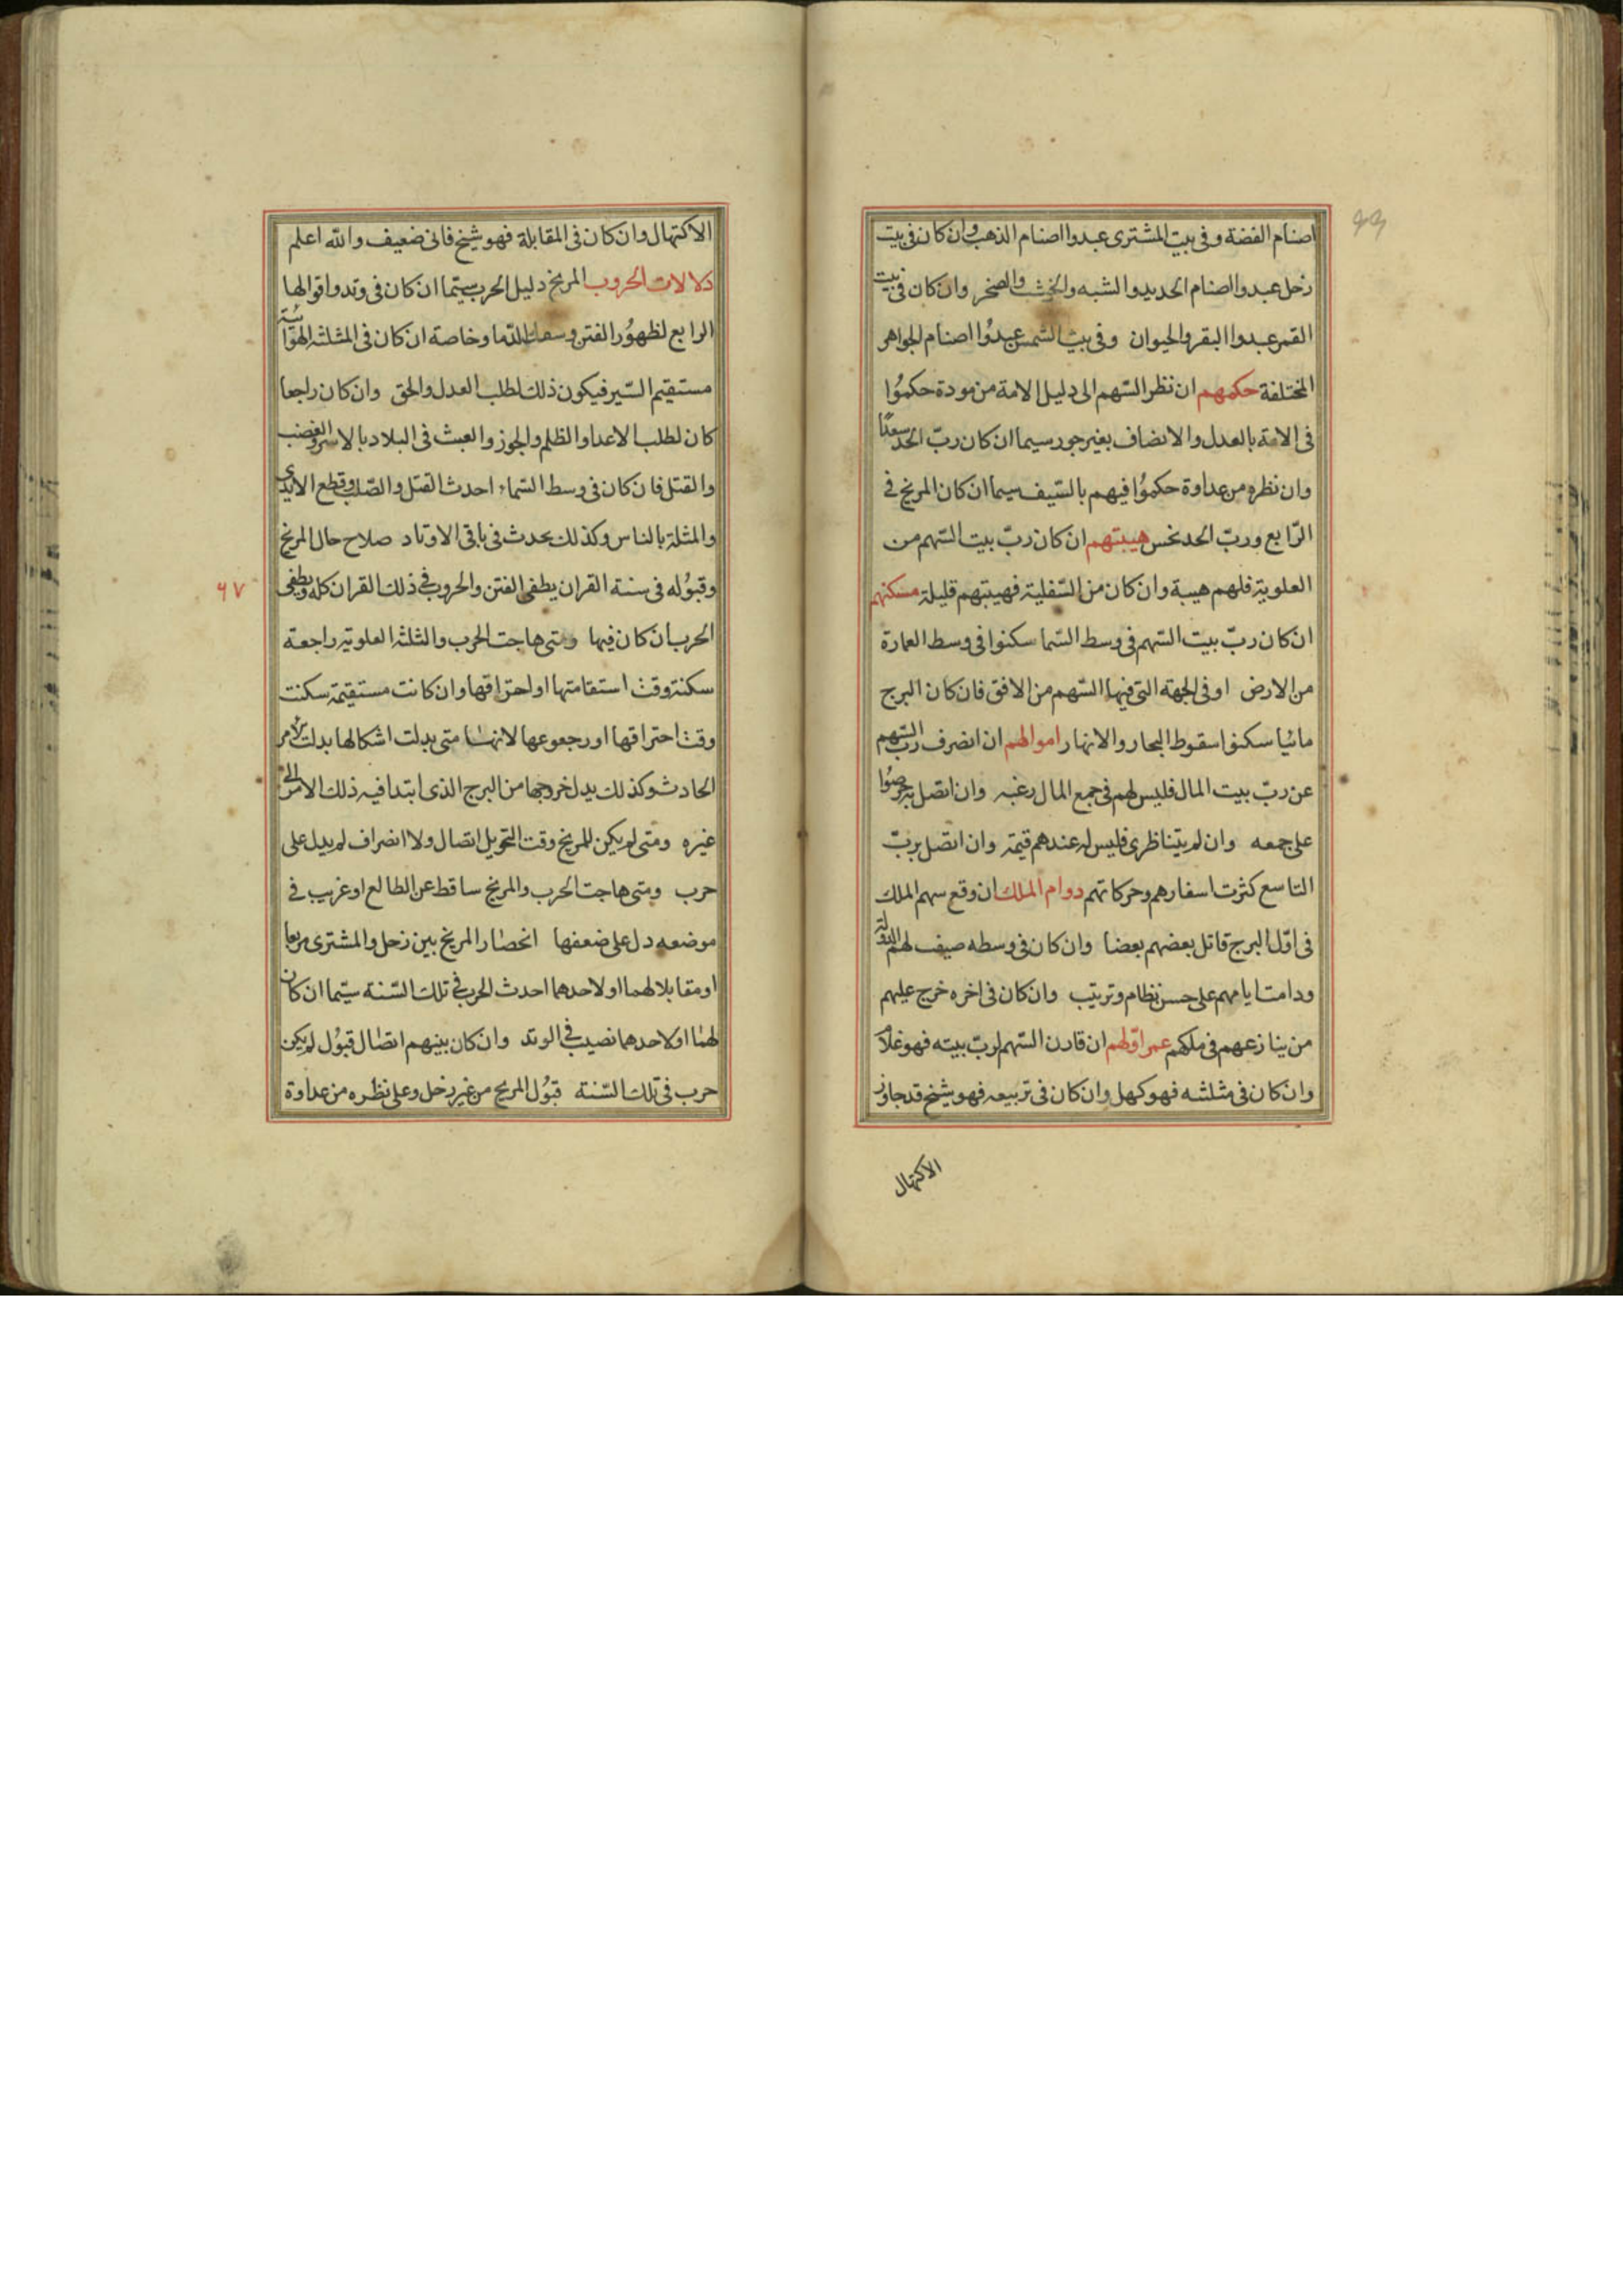 اصنام الفضة وفى بيت المشترى عبدوا اصنام الذهب وان كان فى بيت
زحل عبدوا اصنام الحديد والشبه والخشب والصخر وان كان فى بيت
القمر عبدوا البقر والحيوان وفى بيت الشمس عبدُوا اصنام الجواهر
المختلفة حكمهم ان نظر السّهم الى دليل الامة من مودة حكموُا
فى الامّة بالعدل والانصاف بغير جور سيما ان كان ربّ الحد سعدًا
وان نظره من عداوة حكموُا فيهم بالسّيف سيما ان كان المريخ فى
الرّابع وربّ الحد نحس هيبتهم ان كان ربّ بيت السّهم من
العلوية فلهم هيبة وان كان من السّفلية فهيبتهم قليلة مسكنهم
ان كان ربّ بيت السّهم فى وسط السّما سكنوا فى وسط العمارة
من الارض او فى الجهة التى فيها السّهم من الافق فان كان البرج
مائيا سكنوا سقوط البحار والانهار اموالهم ان انصرف ربّ السّهم
عن ربّ بيت المال فليس لهم فى جمع المال رغبه وان اتصل به حرصُوا
على جمعه وان لم يتناظرى فليس له عندهم قيمة وان اتصل بربّ
التاسع كثرت اسفارهم وحركاتهم دوام الملك ان وقع سهم الملك
فى اوّل البرج قاتل بعضهم بعضا وان كان فى وسطه صيف لهم الدّولة
ودامت ايامهم على حسن نظام وترتيب وان كان فى اخره خرج عليهم
من ينازعهم فى ملكهم عمر اوّلهم ان قارن السّهم لربّ بيته فهو غلام
وان كان فى مثلثه فهو كهل وان كان فى تربيعه فهو شيخ قد جاوز
الاكتهال
الاكتهال وان كان فى المقابلة فهو شيخ فانى ضعيف والله اعلم
دلالات الحروب المريخ دليل الحرب سيّما ان كان فى وتد واقوالها
الرابع لظهوُر الفتن وسفك الدّما وخاصة ان كان فى المثلثه الهوائيّة
مستقيم السّير فيكون ذلك لطلب العدل والحق وان كان راجعا
كان لطلب الاعدا والظلم والجوز والعبث فى البلاد بالاسر والغضب
والقتل فان كان فى وسط السّماء احدث القتل والصّلب وقطع الايدى
والمثلة بالناس وكذلك يحدث فى باقى الاوتاد صلاح حال المريخ
وقبوُله فى سنة القران يطفى الفتن والحروب فى ذلك القران كله ويطفى
٦٧
الحرب ان كان فيها ومتى هاجت الحرب والثلثه العلوية راجعة
سكنت وقت استقامتها او احتراقها وان كانت مستقيمة سكنت
وقت احتراقها او رجوعها لانها متى بدلت اشكالها بدلت الامر
الحادث وكذلك يدل خروجها من البرج الذى ابتدا فيه ذلك الامر الى
غيره ومتى لم يكن للمريخ وقت التحويل اتصال ولا انصراف لم يدل على
حرب ومتى هاجت الحرب والمريخ ساقط عن الطالع او غريب فى
موضعه دل على ضعفها انحصار المريخ بين زحل والمشترى مربعا
او مقابلا لهما او لاحدهما احدث الحرب فى تلك السّنة سيّما ان كان
لهما او لاحدهما نصيب فى الوتد وان كان بينهم اتصال قبوُل لم يكن
حرب فى تلك السّنة قبوُل المريخ من غير زحل وعلى نظره من عداوة